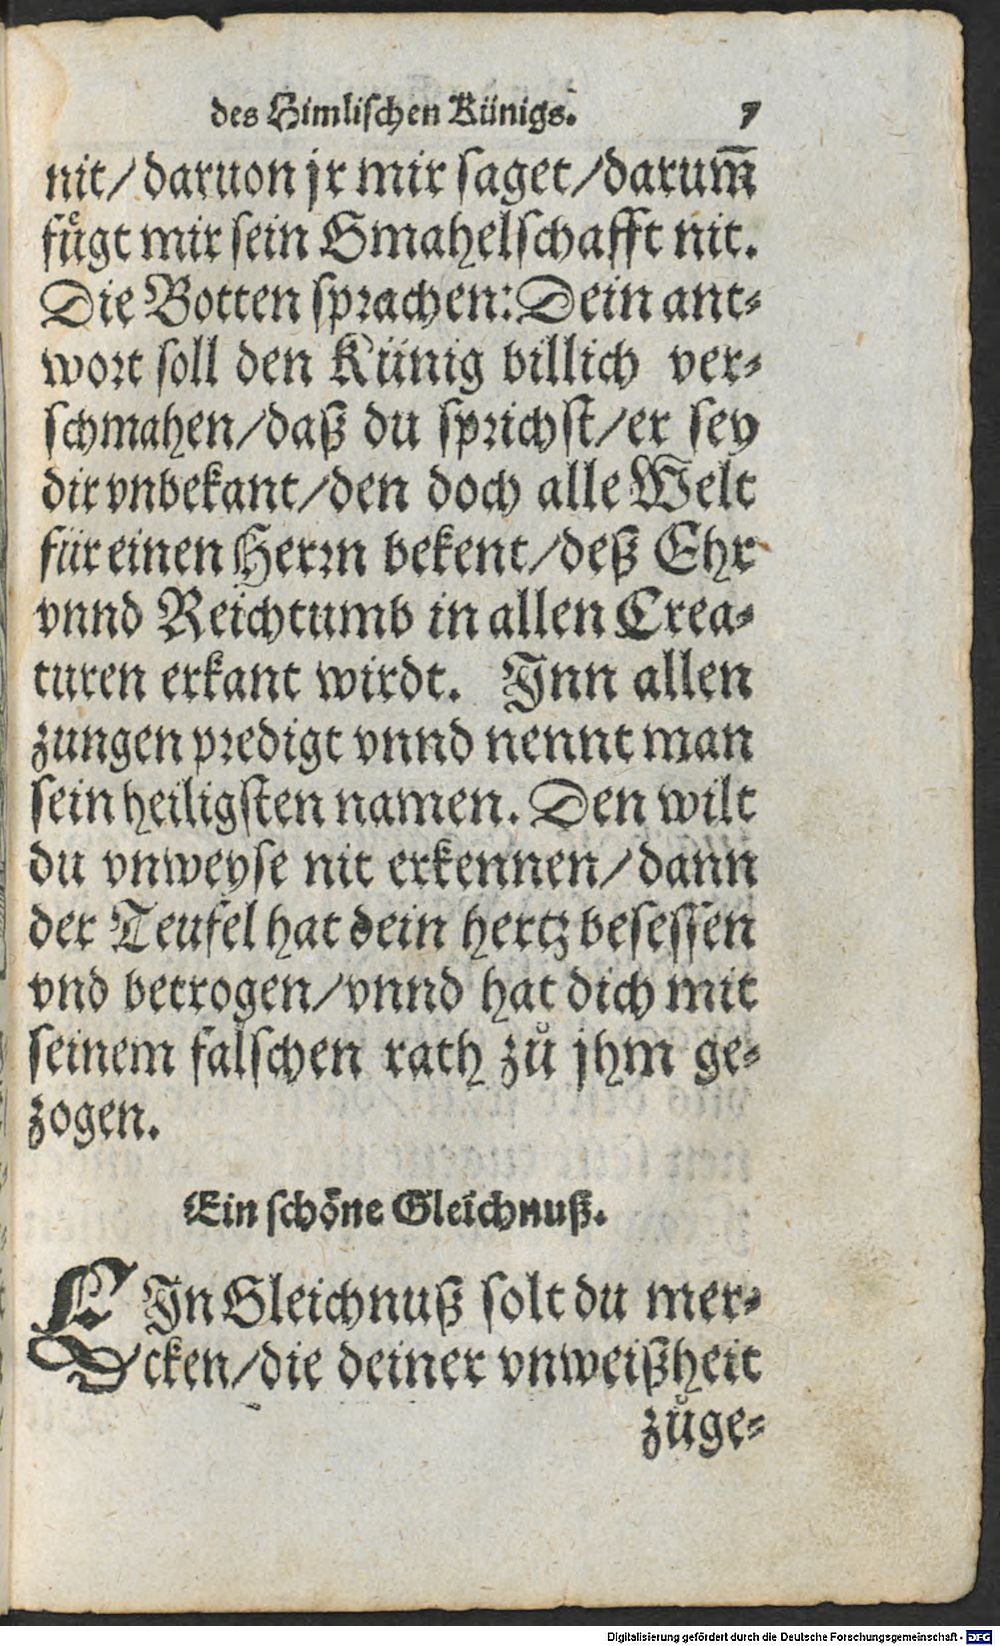 des Himlischen Künigs. 7
nit/ daruon jr mir saget/ darum̄
fuͤgt mir sein Gmahelschafft nit.
Die Botten sprachen: Dein ant-
wort soll den Künig billich ver-
schmahen/ daß du sprichst/ er sey
dir vnbekant/ den doch alle Welt
für einen Herrn bekent/ deß Ehr
vnnd Reichtumb in allen Crea-
turen erkant wirdt. Inn allen
zungen predigt vnnd nennt man
sein heiligsten namen. Den wilt
du vnweyse nit erkennen/ dann
der Teufel hat dein hertz besessen
vnd betrogen/ vnnd hat dich mit
seinem falschen rath zů jhm ge-
zogen.
Ein schöne Gleichnuß.
EIn Gleichnuß solt du mer-
cken/ die deiner vnweißheit
zůge-
Digitalisierung gefördert durch die Deutsche Forschungsgemeinschaft - DFG